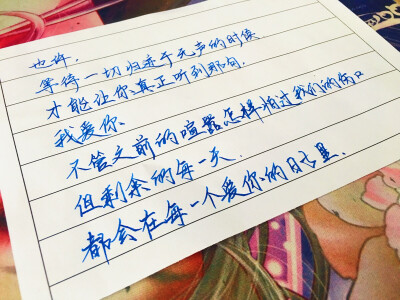 也许，
等待一切归迹于无声的时候
才能让你真正听到那句
我爱你、
不管之前的喧嚣怎样拍过我们的伤口
但剩余的每一天、
都会在每一个爱你的日子里、